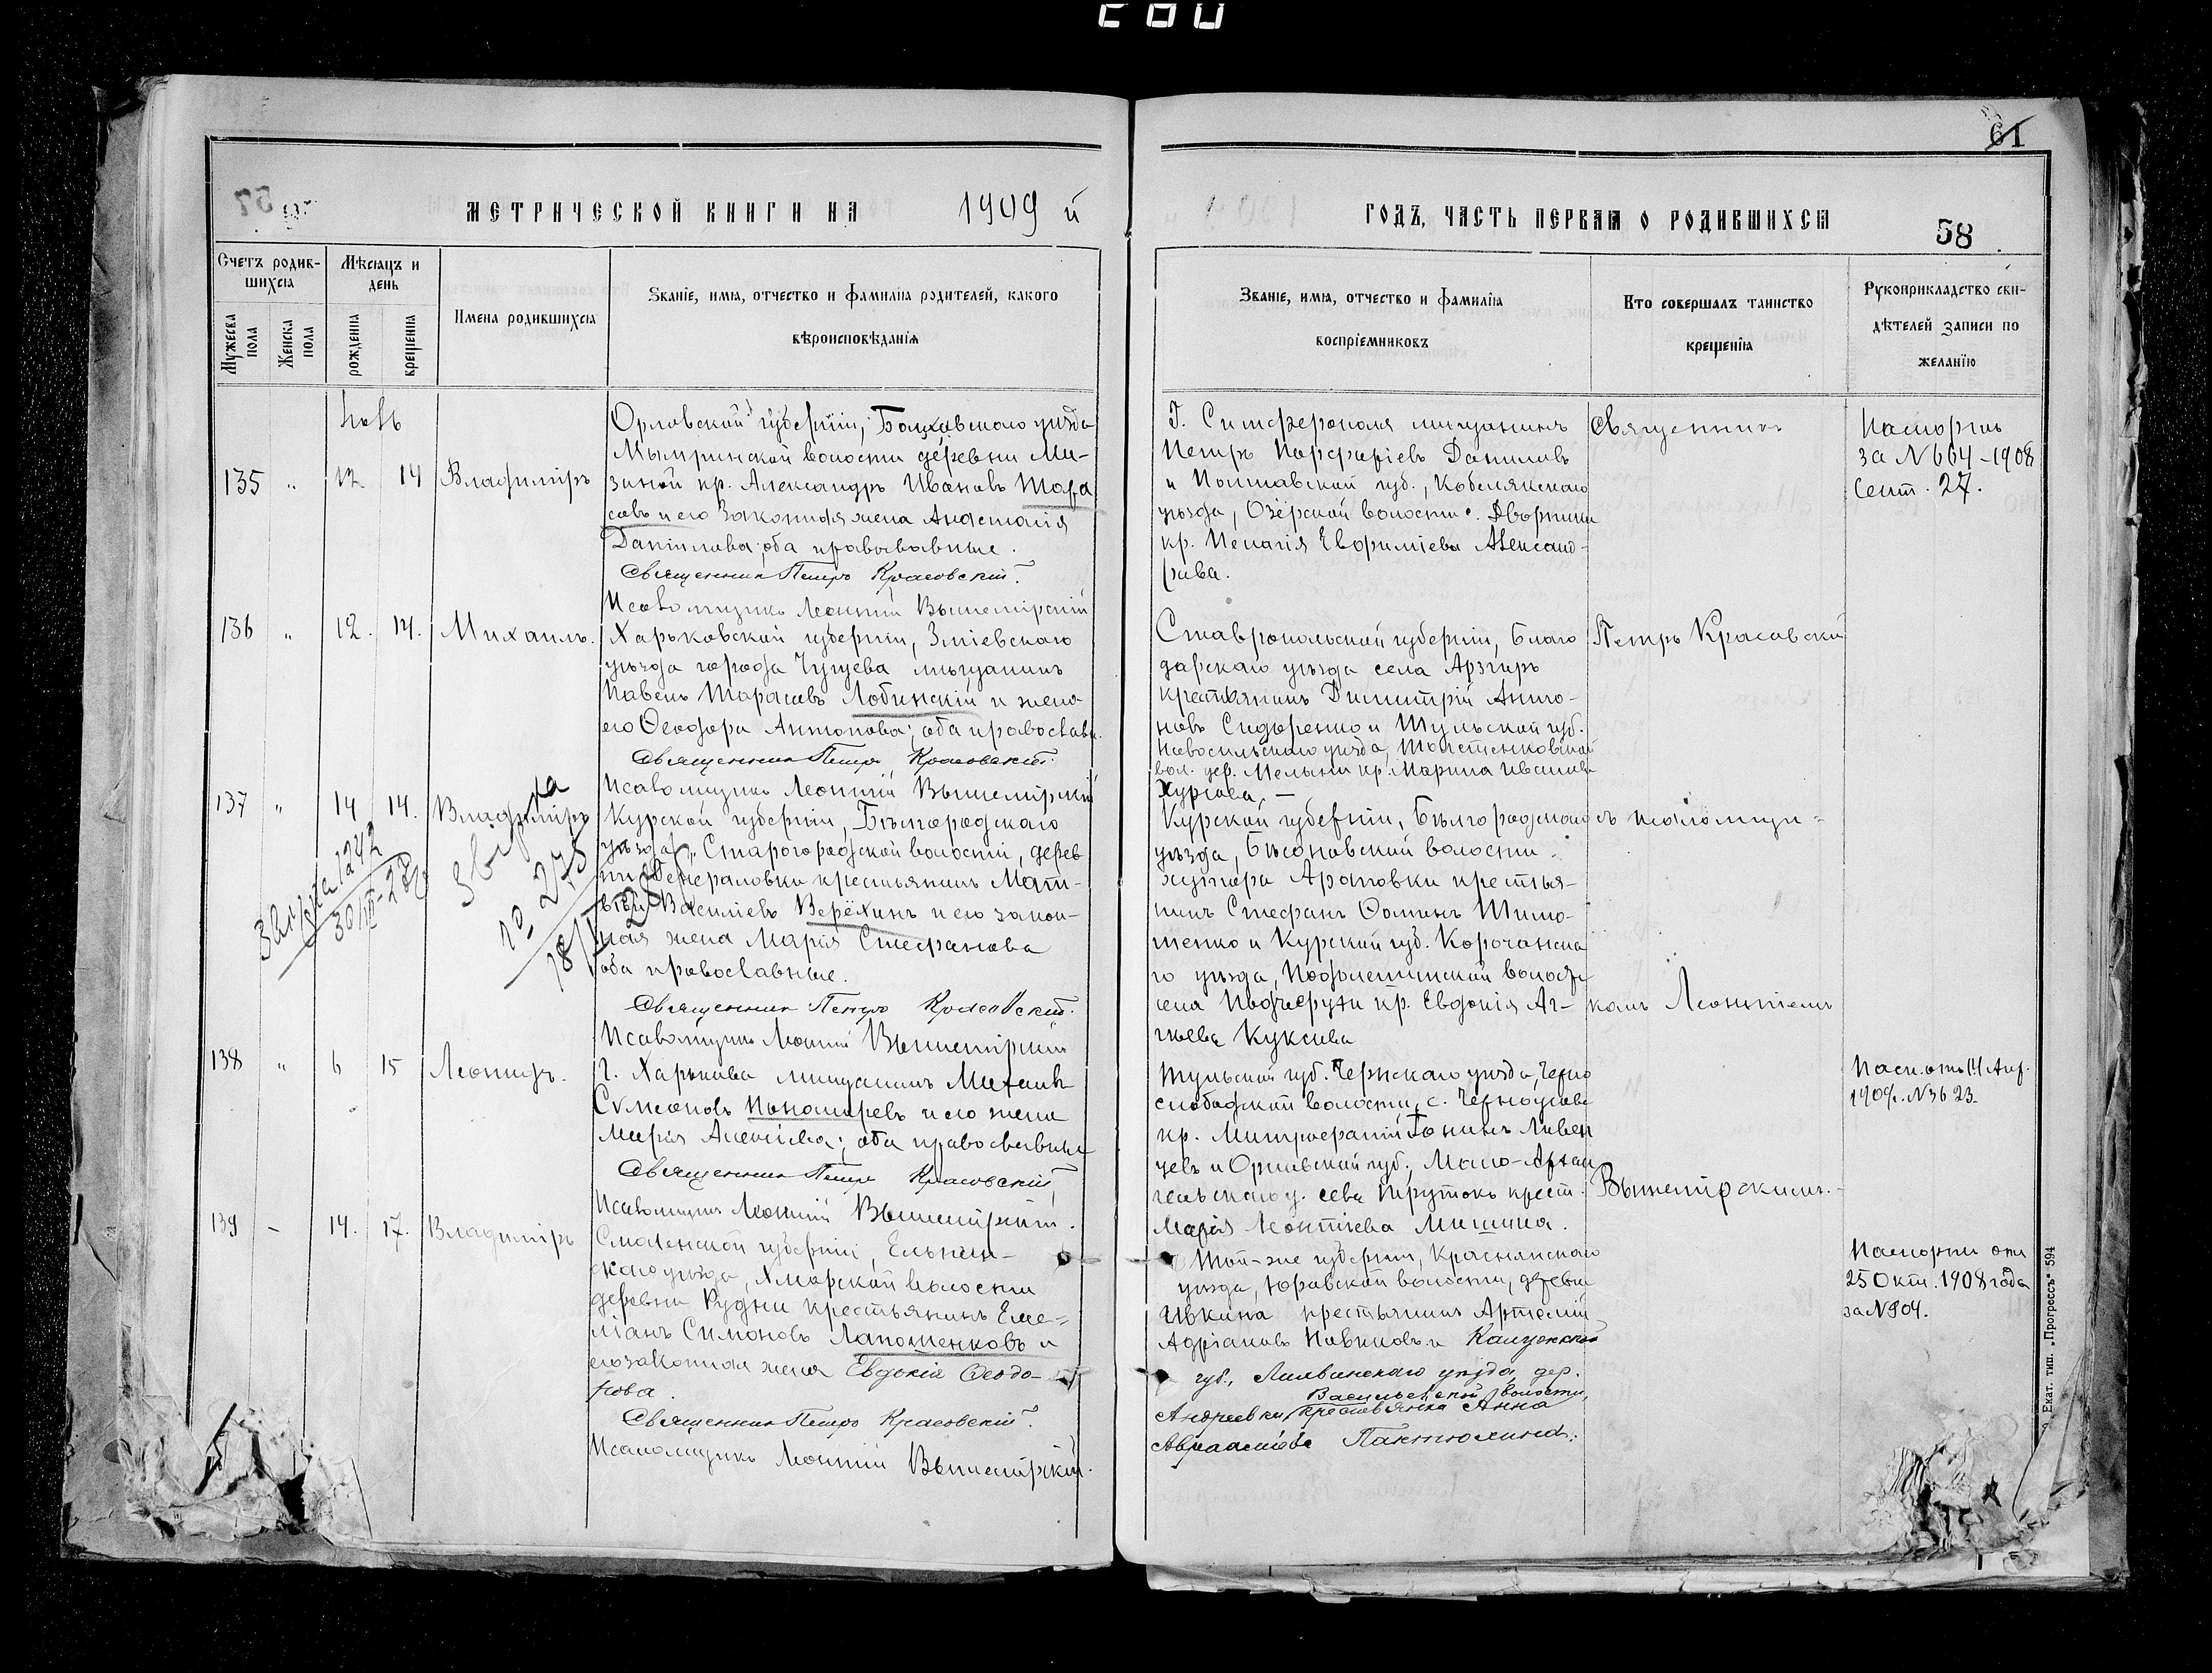 61
МЕТРИЧЕСКОЙ КНИГИ НА 1909 й
ГОДЪ, ЧАСТЬ ПЕРВАЯ О РОДИВШИХСЯ
58
Счетъ родив-
шихся
Мужеска пола
Женска пола
Мѣсяцъ и
день
рожденія
крещенія
Имена родившихся
Званіе, имя, отчество и фамилія родителей, какого
вѣроисповѣданія
Званіе, имя, отчество и фамилія
воспріемниковъ
Кто совершалъ таинство
крещенія
Рукоприкладство сви-
дѣтелей записи по
желанію
135 " 12 14 Владиміръ
Орловской губерніи, Болховскаго уѣзда
Мымринской волости деревни Ми-
зиной кр. Александръ Ивановъ Тара
совъ и его законная жена Анастасія
Даніилова; оба православные.
Священникъ Петръ Красовскій.
Псаломщикъ Леонтій Вышемірскій
Г. Симферополя мѣщанинъ
Петръ Порфиріевъ Даниловъ
и Полтавской губ., Кобелякскаго
уѣзда, Озёрской волости с. Дворники
кр. Пелагія Евфиміева Александ-
рова.
Священник
Паспортъ
за N 664-1908
Сент. 27.
136 " 12. 14. Михаилъ.
Харьковской губерніи, Зміевскаго
уѣзда города Чугуева мѣщанинъ
Павелъ Тарасовъ Лобинскій и жена
его Ѳеодора Антонова; оба правосла​в.
Священникъ Петръ Красовскій.
Псаломщикъ Леонтій Вышемірскій
Ставропольской губерніи, Благо
дарскаго уѣзда села Арзгиръ
крестьянинъ Димитрій Анто-
новъ Сидоренко и Тульской губ.
Новосильскаго уѣзда,
вол. дер. Мелыни кр. Марина Иванова
Петръ Красовскій
137 " 14 14. Владиміръ
Курской губерніи, Бѣлгородскаго
уѣзда, Старогородской волости, дерев
ни Генераловки крестьянинъ Мат-
вѣй Василіевъ Верёхинъ и его закон-
ная жена Марія Стефанова
оба православные.
Священникъ Петръ Красовскій.
Псаломщикъ Леонтій Вышемірскій
Курской губерніи, Бѣлгородскаго
уѣзда, Бѣсоновской волости
хутора Араповки крестья-
нинъ Стефанъ Ѳоминъ Тимо-
шенко и Курской губ. Корочанска
го уѣзда,
села Подъяруги кр. Евдокія Аг-
гѣева Куксина
съ псаломщи-
комъ Леонтіемъ
138 " 6 15 Леонидъ.
г. Харькова мѣщанинъ Михаилъ
Сѵмеоновъ Пономаревъ и его жена
Марія Алексіева; оба православные
Священникъ Петръ Красовскій
Псаломщикъ Леонтій Вышемірскій.
Тульской губ. Чернскаго уѣзда, Черно
слободской волости, с. Черноусова
кр. Митрофаній Іонинъ Ливен
цевъ и Орловской губ., Мало-Архан
гельскаго у. села Прутокъ крест.
Марія Леонтіева Мишина.
Вышемірскимъ.
1909г. N 3623.
139 - 14. 17. Владиміръ
Смоленской губерніи, Ельнин-
скаго уѣзда, Хмарской волости
деревни Рудни крестьянинъ Еме-
ліанъ Симоновъ Лапошенковъ и
его законная жена Евдокія Ѳеодо-
рова.
Священникъ Петръ Красовскій.
Псаломщикъ Леонтій Вышемірскій.
Той-же губерніи, Краснинскаго
уѣзда, Юровской волости, деревни
Ивкина крестьянинъ Артемій
Адріановъ Новиковъ и Калужской
губ., Лихвинскаго уѣзда, дер.
Васильевской волости,
Андреевки, крестьянка Анна
Авраамова Пантюхина.
Паспортъ отъ
25 Окт. 1908 года
за N 804.
Екат. тип. „Прогрессъ" 594